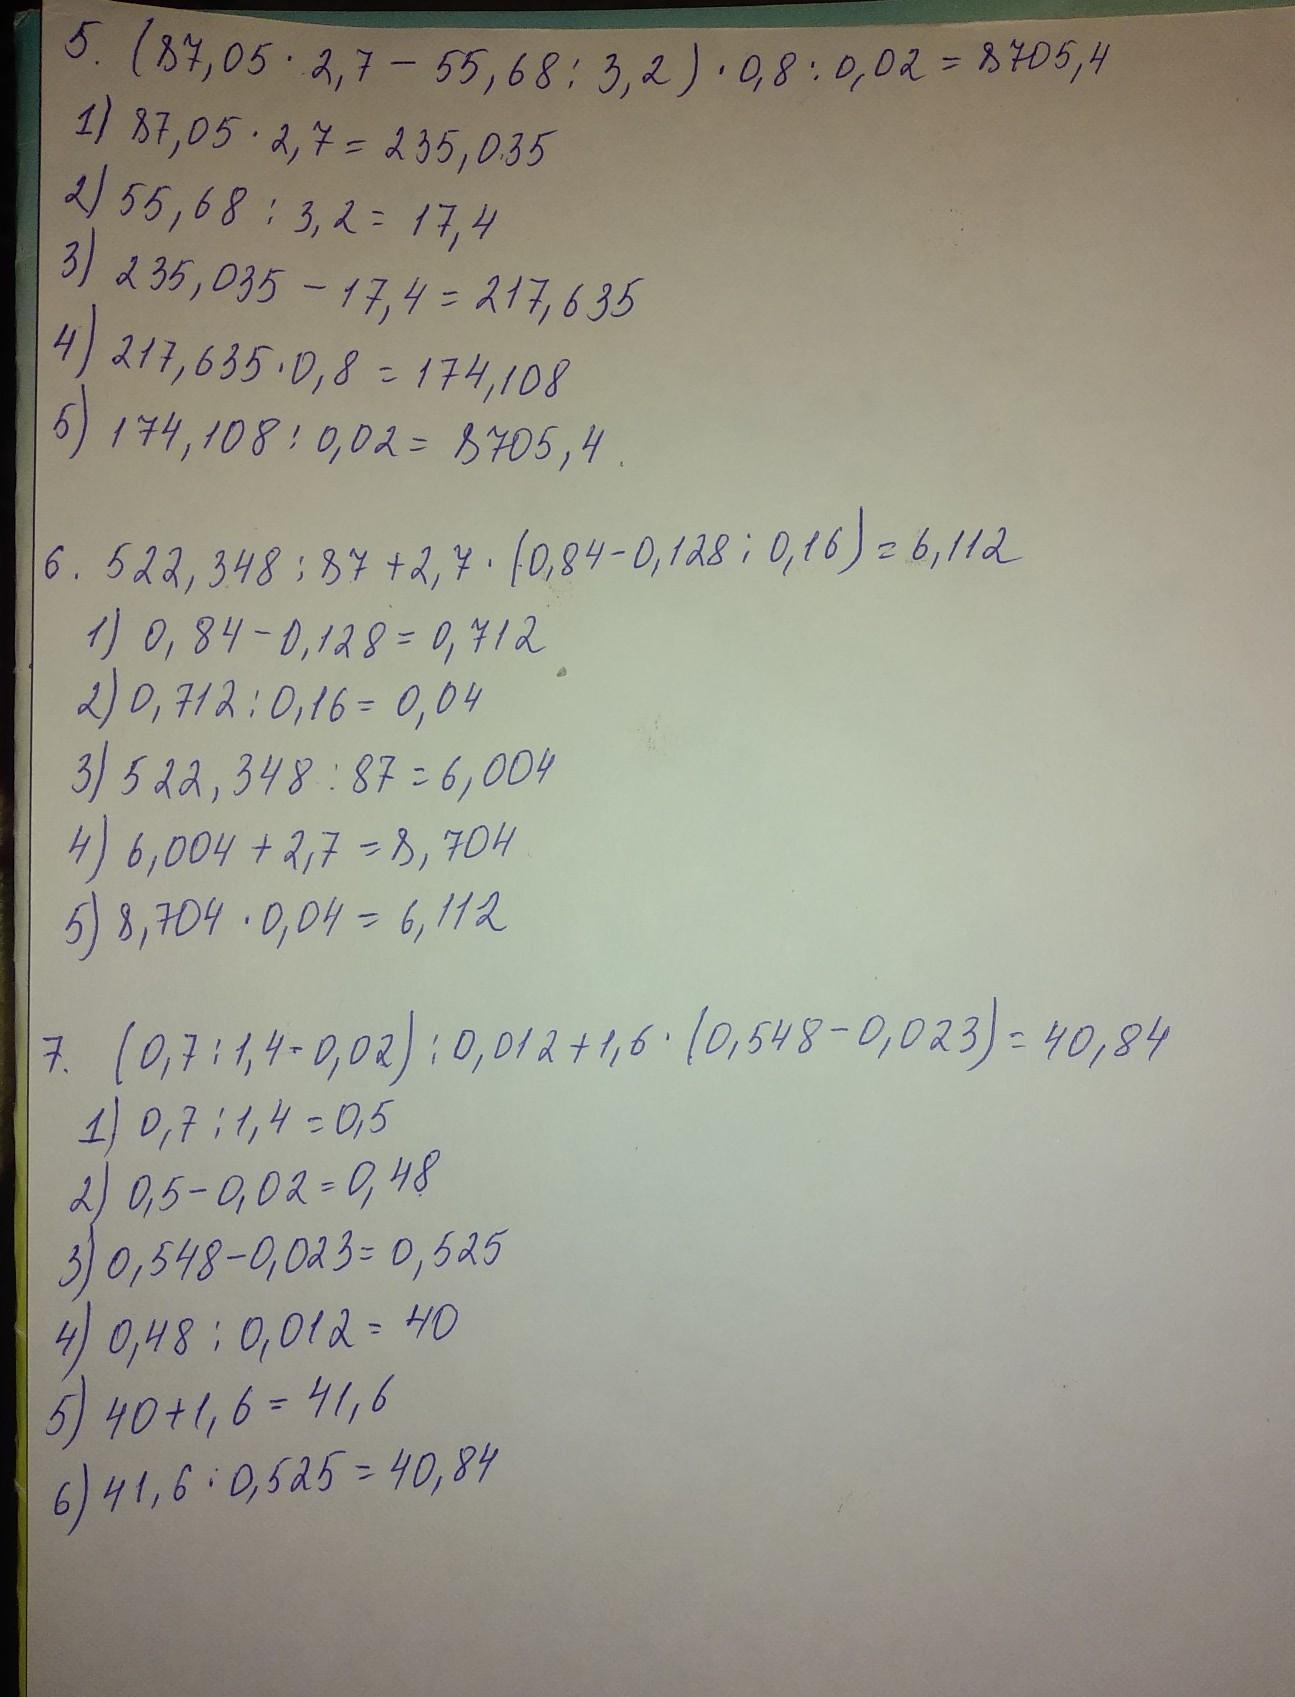 5. (87,05 · 2,7 − 55,68 : 3,2) · 0,8 : 0,02 = 8705,4
1) 87,05 · 2,7 = 235,035
2) 55,68 : 3,2 = 17,4
3) 235,035 − 17,4 = 217,635
4) 217,635 · 0,8 = 174,108
5) 174,108 : 0,02 = 8705,4.
6. 522,348 : 87 + 2,7 · (0,84 − 0,128 : 0,16) = 6,112
1) 0,84 − 0,128 = 0,712
2) 0,712 : 0,16 = 0,04
3) 522,348 : 87 = 6,004
4) 6,004 + 2,7 = 8,704
5) 8,704 · 0,04 = 6,112
7. (0,7 : 1,4 - 0,02) : 0,012 + 1,6 · (0,548 − 0,023) = 40,84
1) 0,7 : 1,4 = 0,5
2) 0,5 − 0,02 = 0,48
3) 0,548 − 0,023 = 0,525
4) 0,48 : 0,012 = 40
5) 40 + 1,6 = 41,6
6) 41,6 · 0,525 = 40,84